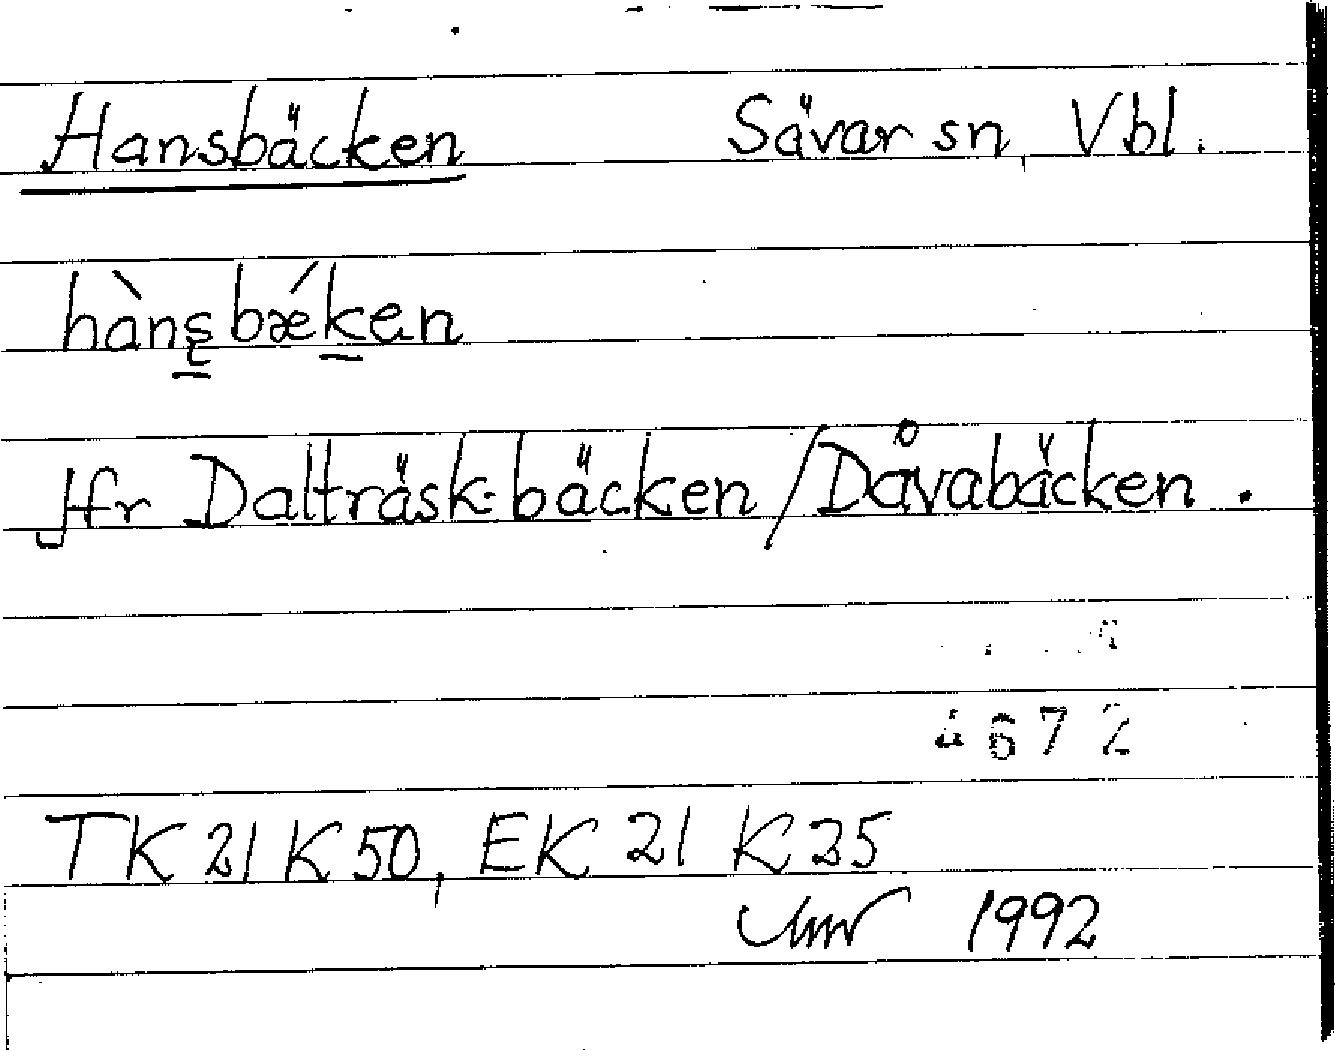 Hansbäcken Sävar sn, Vbl.
hàns̨bǽken
Jfr Dalträsk-bäcken/Dåvabäcken.
4672
TK 21 K 50, EK 21 K 25
1992